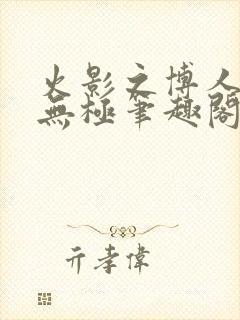 火影之博人
無極筆趣閣
亓孝偉